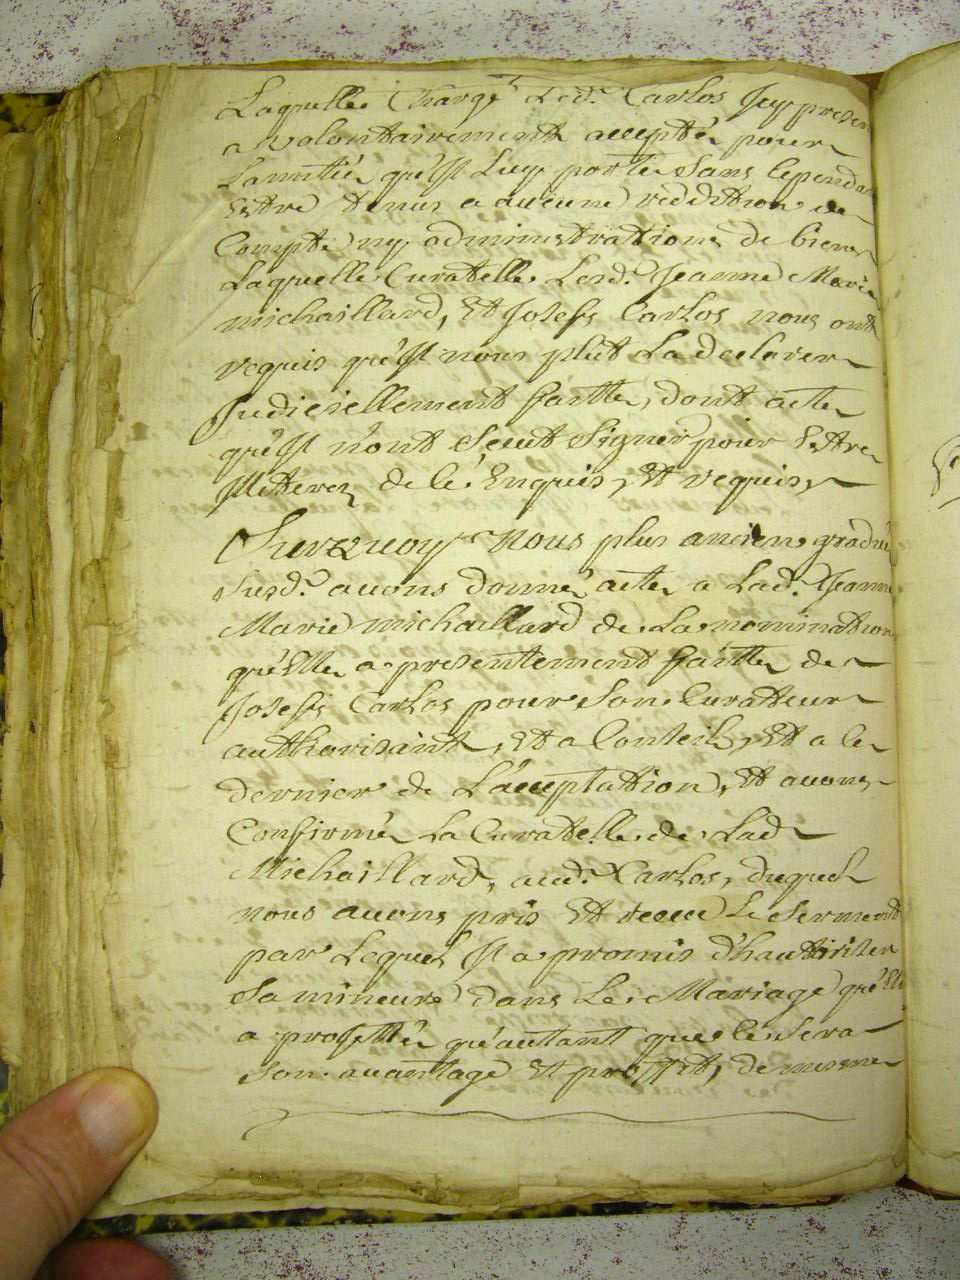 Laquelle Charge Led. Carlos Icy presen
a volontairement accepté pour
Lamitié qu'Il Luy porte Sans Cependan
Estre tenus a aucune reddition de
Compte ny administration de biens
Laquelle Curatelle Lesd. Jeanne Marie
michaillard, Et Joseph Carlos nous ont
requis qu'Il nous plut La declarer
Judiciellement faitte, dont acte
qu'Il n'ont Sceut Signer pour Estre
Illiterez de ce Enquis, Et requis,
Surquoy Nous plus ancien gradué
Susd. avons donné acte a Lad. Jeanne
Marie michaillard de La nomination
qu'Elle a presentement faitte de
Joseph Carlos pour Son Curatteur
authorisant, Et a Conseil, Et a ce
dernier de L'acceptation, Et avons
Confirmé La Curatelle de Lad
Michaillard, aud. Carlos, duquel
nous avons pris Et receu Le Serment
par Lequel Il a promis d'hauttoriser
Sa mineure dans Le Mariage qu'Elle
a projetté qu'autant que ce Sera
Son avantage Et proffit, de mesme